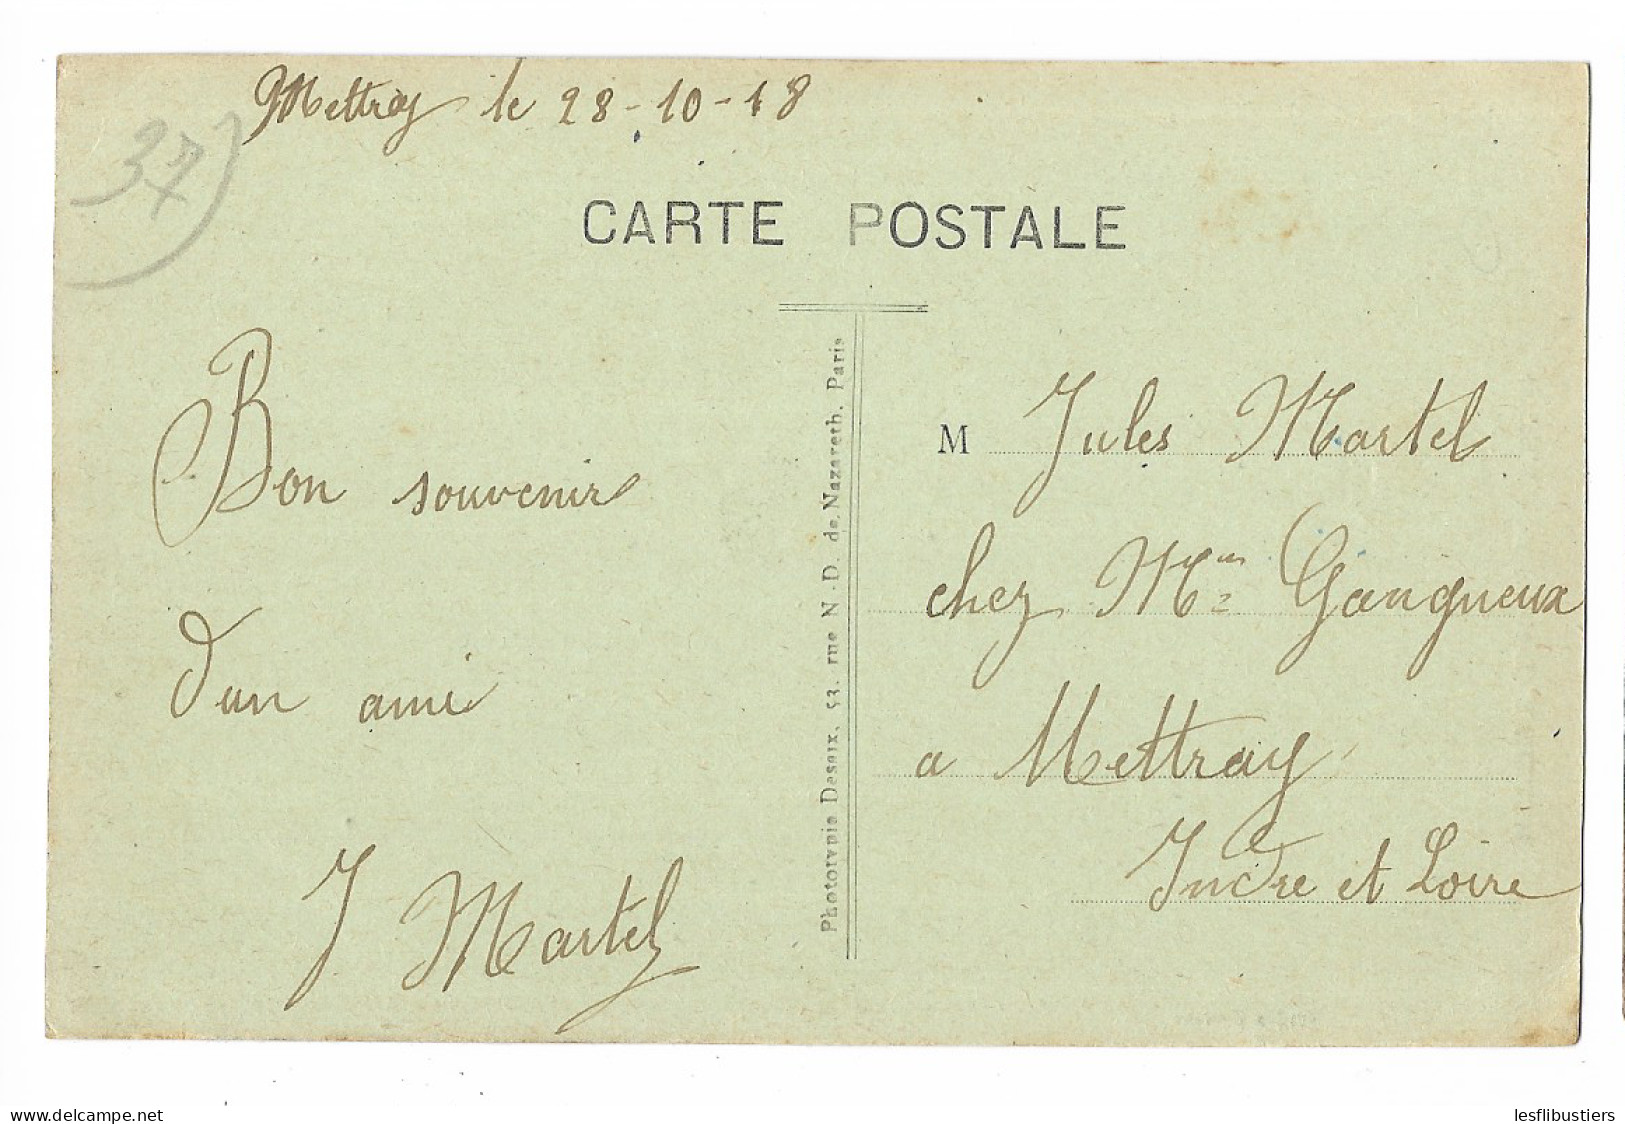 Mettray le 28-10-18
37)
CARTE POSTALE
Bon souvenir
d'un ami
J Martel
Phototypie Desaix, 53, rue N. D. de Nazareth, Paris
M Jules Martel
chez Mme Gangneux
a Mettray
Indre et Loire
www.delcampe.net
lesflibustiers